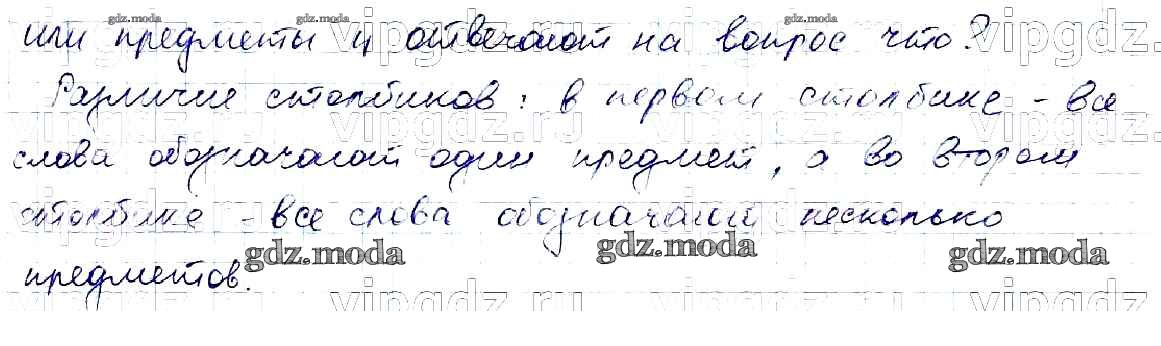 gdz.moda gdz.moda gdz.moda
или предметы и отвечают на вопрос что?
vipgdz.ru vipgdz.ru vipgdz.ru vipgdz
Различие столбиков: в первом столбике - все
vipgdz.ru vipgdz.ru vipgdz.ru vipgdz
слова обозначают один предмет, а во втором
столбике - все слова обозначают несколько
vipgdz.ru vipgdz.ru vipgdz.ru vipgdz
gdz.moda gdz.moda gdz.moda
предметов.
vipgdz.ru vipgdz.ru vipgdz.ru vipgdz